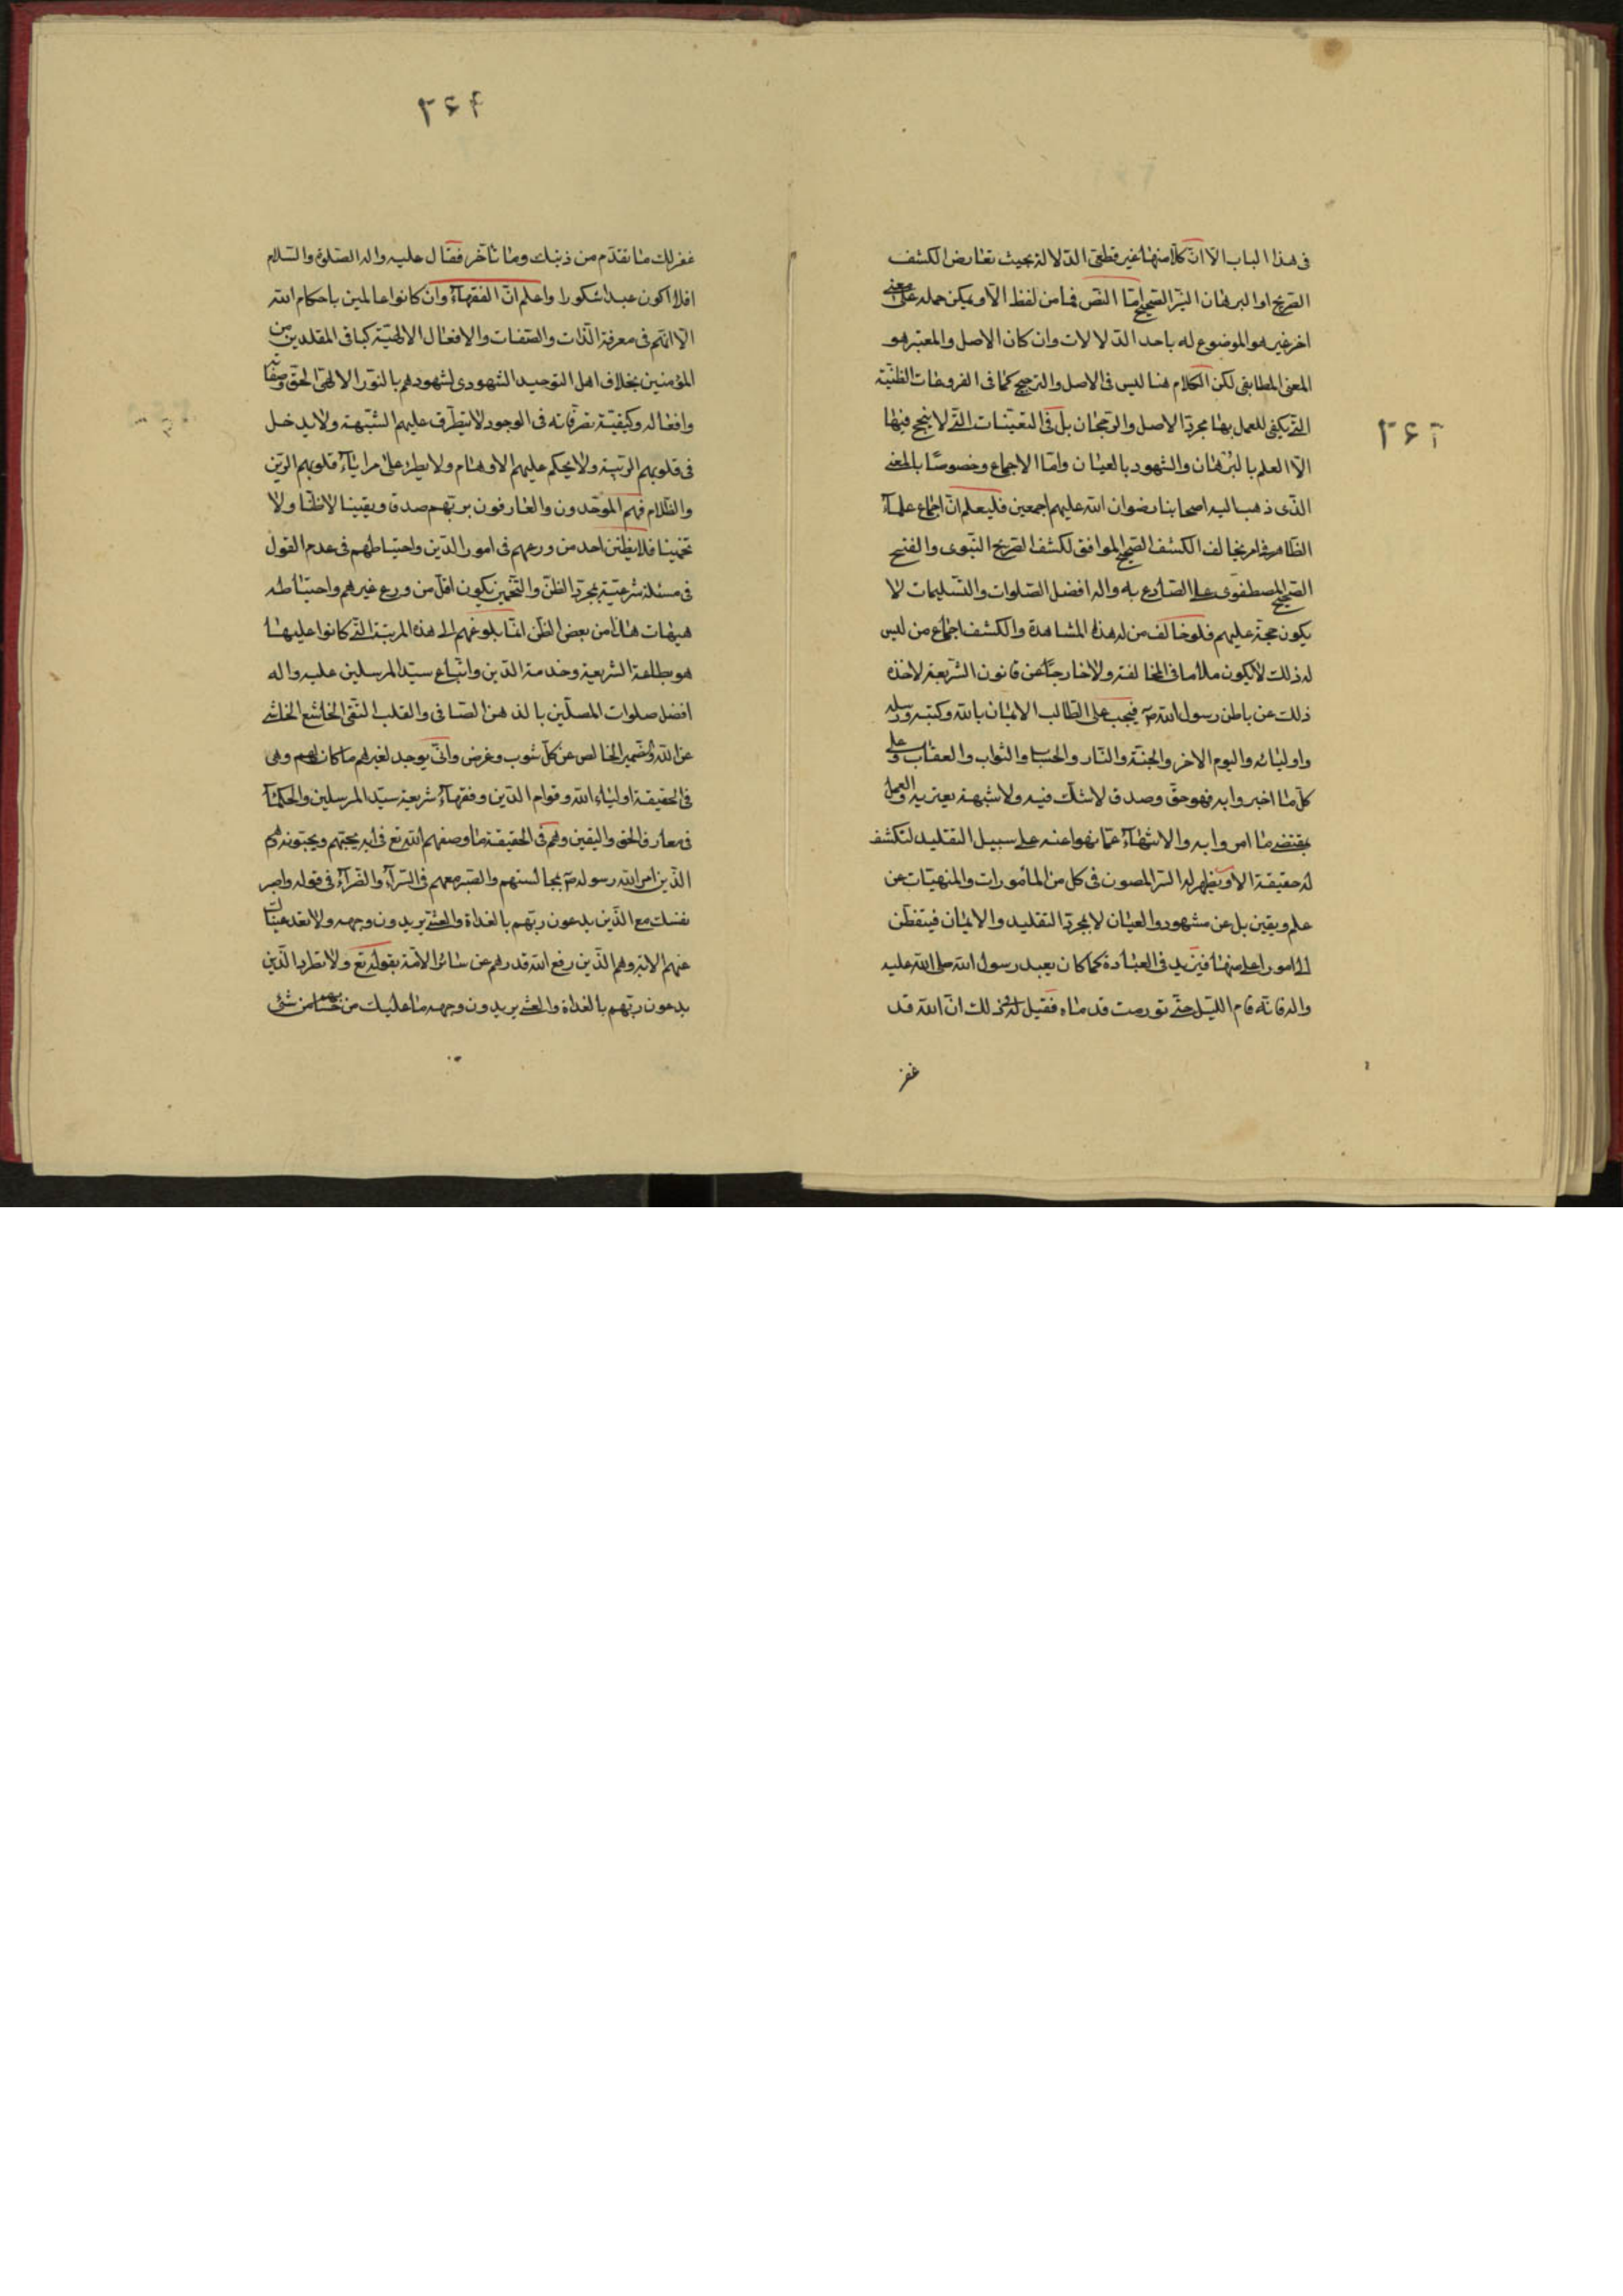 فى هذا الباب الّا انّ كلّا منهما غير قطعى الدّلالة بحيث تعارض الكشف
الصّريح او البرهان النيّر الصّحيح امّا النّص فما من لفظ الّا و يمكن حمله على معنى
اخر غير هو الموضوع له باحد الدّلالات وان كان الاصل والمعتبر هو
المعنى المطابقى لكن الكلام هنا ليس فى الاصل والترجيح كما فى الفروعات الظنّيّة
التى يكفى للعمل بها مجرد الاصل والرّجحان بل فى التعيّنات التى لا ينجح فيها
الّا العلم بالبرهان والشهود بالعيان وامّا الاجماع وخصوصًا بالمعنى
الذّى ذهب اليه اصحابنا رضوان الله عليهم اجمعين فليعلم انّ اجماع علمآء
الظّاهر فى امر يخالف الكشف الصّحيح الموافق لكشف الصّريح النّبوى والفتح
الصّحيح المصطفوى على الصّادع به واله افضل الصّلوات والتّسليمات لا
يكون حجّة عليهم فلو خالف من له هذه المشاهدة والكشف اجماع من ليس
له ذلك لا يكون ملاما فى المخالفة ولا خارجًا عن قانون الشّريعة لاخذه
ذلك عن باطن رسول الله ص فيجب على الطّالب الايمان بالله وكتبه ورسله
واوليائه واليوم الاخر والجنّة والنّار والحساب والثواب والعقاب وعلى
كلّ ما اخبروا به فهو حقّ وصدق لا شكّ فيه ولا شبهة يعتريه والعمل
بمقتضى ما امروا به والانتهآء عمّا نهوا عنه على سبيل التقليد لتكشف
له حقيقة الامر ويظهر له السّر المصون فى كل من المأمورات والمنهيّات عن
علم ويقين بل عن مشهود والعيان لا بمجرّد التقليد والايمان فيتفطّن
الى امور اعلى منها فيزيد فى العبادة كما كان يعبد رسول الله صلى الله عليه
واله فانّه قام اللّيل حتّى تورمت قدماه فقيل له فى ذلك انّ الله قد
غفر
غفر لك ما تقدّم من ذنبك وما تأخّر فقال عليه واله الصّلوة والسّلام
افلا اكون عبدا شكورا واعلم انّ الفقهآء وان كانوا عالمين باحكام الله
الّا انّهم فى معرفة الذّات والصّفات والافعال الالهيّة كباقى المقلدين من
المؤمنين بخلاف اهل التوحيد الشّهودى لشهودهم بالنّور الالهى الحق وصفاته
وافعاله وكيفيّة تصرّفاته فى الوجود لا يتطرّق عليهم الشّبهة ولا يدخل
فى قلوبهم الرّيبة ولا يحكم عليهم الاوهام ولا يطرء على مراياء قلوبهم الرّين
والظّلام فهم الموحّدون والعارفون بربّهم صدقا ويقينا لا ظنّا ولا
تخمينا فلا يظنّن احد من ورعهم فى امور الدّين واحتياطهم فى عدم القول
فى مسئلة شرعيّة بمجرّد الظنّ والتّخمين يكون اقلّ من ورع غيرهم واحتياطه
هيهات هذا من بعض الظّن انّما بلوغهم الى هذه المرتبة التى كانوا عليها
هو بطاعة الشريعة وخدمة الدّين واتّباع سيّد المرسلين عليه واله
افضل صلوات المصلّين بالذهن الصّافى والقلب النّقى الخاشع الخاشى
عن الله والضّمير الخالص عن كلّ شوب وغرض وانّى يوجد لغيرهم ما كان لهم وهى
فى الحقيقة اولياء الله وقوام الدّين وفقهآء شريعة سيّد المرسلين والحكمآء
فى معارف الحق واليقين وهم فى الحقيقة ما وصفهم الله تع فى اية يحبّهم ويحبّونه هم
الذّين امر الله رسوله ص بمجالستهم والصّبر معهم فى السّرآء والضّرآء فى قوله واصبر
نفسك مع الذّين يدعون ربّهم بالغداة والعشى يريدون وجهه ولا تعد عيناك
عنهم الاية وهم الذّين رفع الله قدرهم عن سائر الامّة بقوله تع ولا تطرد الذّين
يدعون ربّهم بالغداة والعشى يريدون وجهه ما عليك من حسابهم من شئ